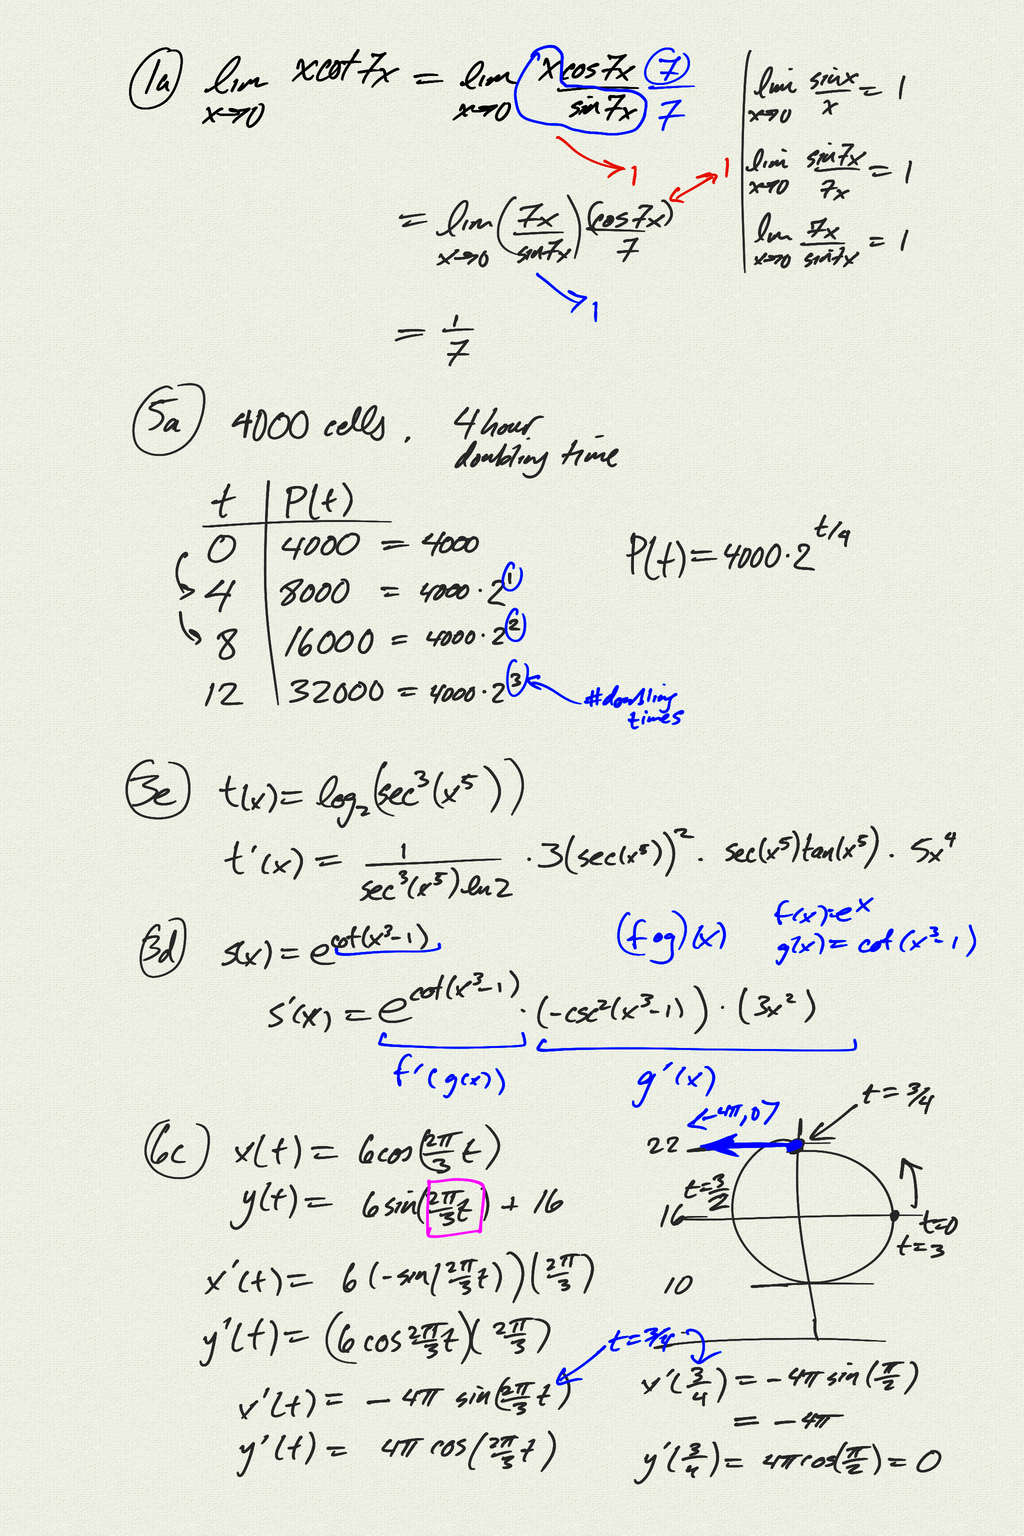 1a lim x→0 xcot7x = lim x→0 xcos7x/sin7x 7/7
lim x→0 sinx/x = 1
lim x→0 sin7x/7x = 1
lim x→0 7x/sin7x = 1
1 1
= lim x→0 (7x/sin7x)(cos7x)/7
1
= 1/7
5a 4000 cells. 4 hour
doubling time
t P(t)
0 4000 = 4000
4 8000 = 4000·2^1
8 16000 = 4000·2^2
12 32000 = 4000·2^3
#doubling
times
P(t) = 4000·2^t/4
3e t(x) = log₂(sec³(x⁵))
t'(x) = 1/sec³(x⁵)ln2 · 3(sec(x⁵))² · sec(x⁵)tan(x⁵) · 5x⁴
3d s(x) = e^cot(x³-1)
(fog)(x)
f(x)=e^x
g(x) = cot(x³-1)
s'(x) = e^cot(x³-1) · (-csc²(x³-1)) · (3x²)
f'(g(x)) g'(x)
6c x(t) = 6cos(2π/3 t)
y(t) = 6sin(2π/3 t) + 16
x'(t) = 6(-sin(2π/3 t))(2π/3)
y'(t) = (6cos 2π/3 t)(2π/3)
x'(t) = -4π sin(2π/3 t)
y'(t) = 4π cos(2π/3 t)
t=3/4
<-4π,0>
22
t=3/2
16
t=0
t=3
10
t=3/4
x'(3/4) = -4π sin(π/2)
= -4π
y'(3/4) = 4πcos(π/2) = 0